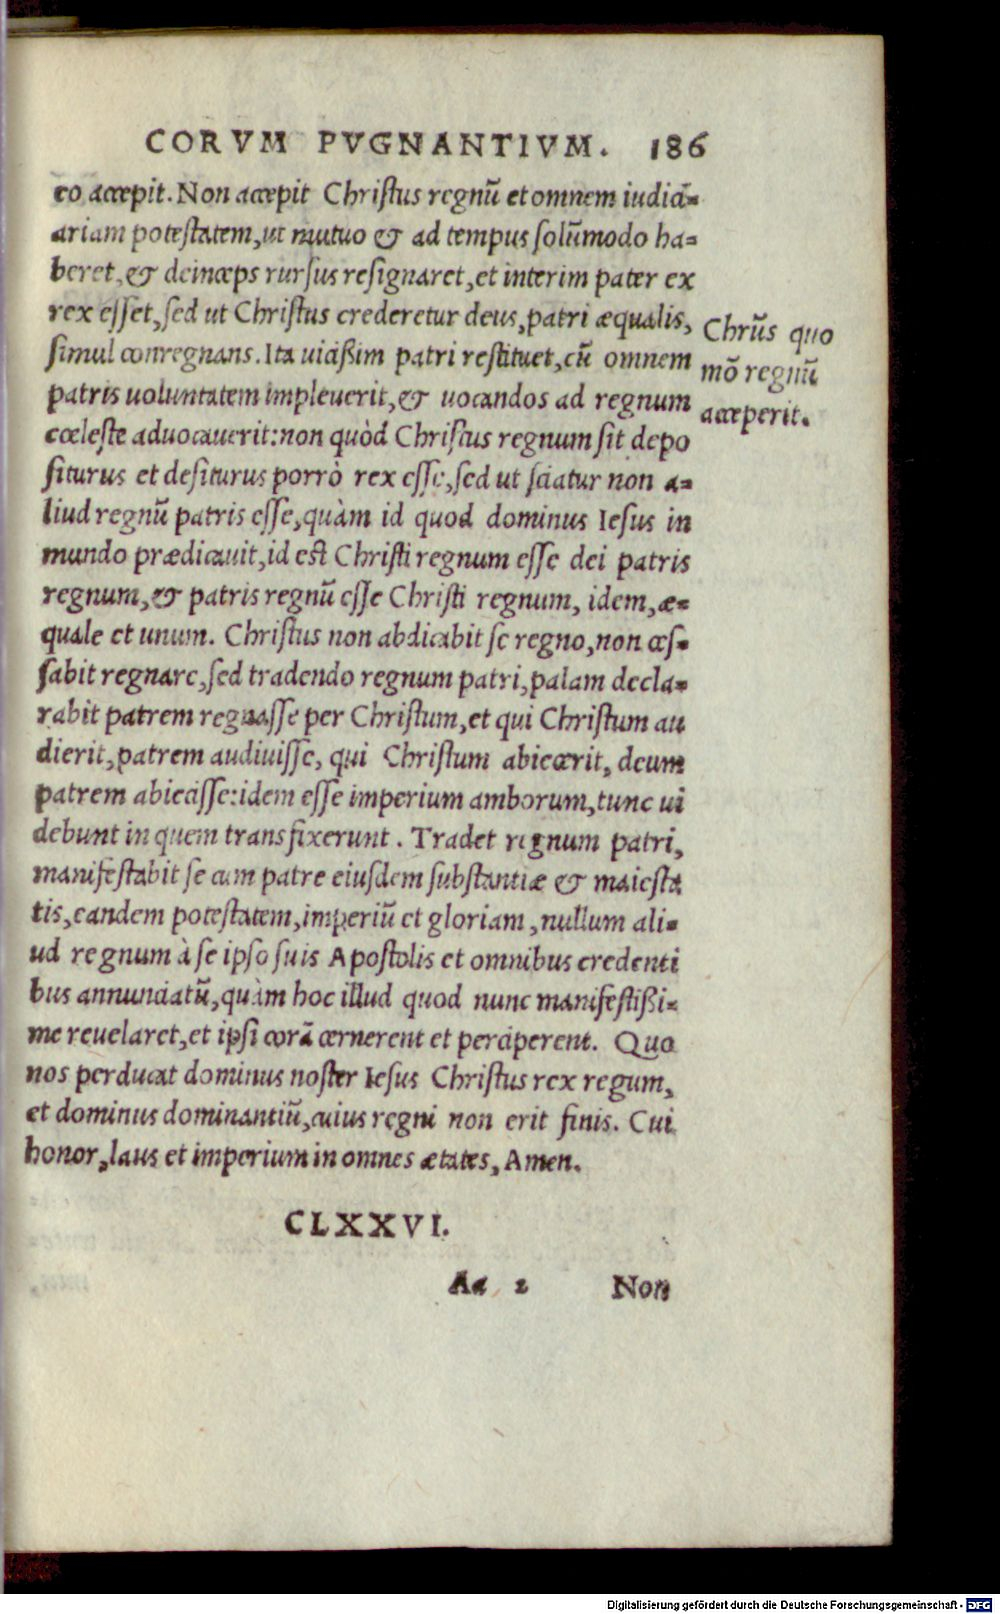 CORVM PVGNANTIVM. 186
eo accepit. Non accepit Christus regnũ et omnem iudici=
ariam potestatem, ut mutuo & ad tempus solũmodo ha=
beret, & deinceps rursus resignaret, et interim pater ex
rex esset, sed ut Christus crederetur deus, patri æqualis,
simul conregnans. Ita uicißim patri restituet, cũ omnem
patris uoluntatem impleuerit, & uocandos ad regnum
cœleste aduocauerit: non quòd Christus regnum sit depo
siturus et desiturus porrò rex esse, sed ut sciatur non a=
liud regnũ patris esse, quàm id quod dominus Iesus in
mundo prædicauit, id est Christi regnum esse dei patris
regnum, & patris regnũ esse Christi regnum, idem, æ=
quale et unum. Christus non abdicabit se regno, non ces=
sabit regnare, sed tradendo regnum patri, palam decla=
rabit patrem regnasse per Christum, et qui Christum au
dierit, patrem audiuisse, qui Christum abiecerit, deum
patrem abiecisse: idem esse imperium amborum, tunc ui
debunt in quem transfixerunt. Tradet regnum patri,
manifestabit se cum patre eiusdem substantiæ & maiesta
tis, eandem potestatem, imperiũ et gloriam, nullum ali=
ud regnum à se ipso suis Apostolis et omnibus credenti
bus annunciatũ, quàm hoc illud quod nunc manifestißi=
me reuelaret, et ipsi corã cernerent et perciperent. Quo
nos perducat dominus noster Iesus Christus rex regum,
et dominus dominantiũ, cuius regni non erit finis. Cui
honor, laus et imperium in omnes ætates, Amen.
Chrũs quo
mõ regnũ
acceperit.
CLXXVI.
Aa 2 Non
Digitalisierung gefördert durch die Deutsche Forschungsgemeinschaft - DFG